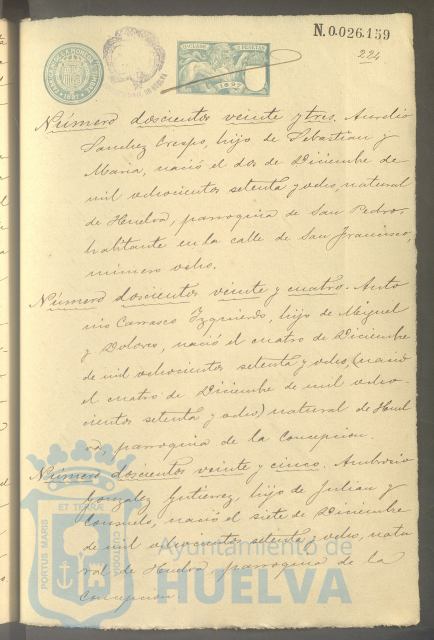 N.0.026.159
224
1897
Número doscientos veinte y tres. Aurelio
Sanchez Crespo, hijo de Sebastian y
Maria, nació el dos de Diciembre de
mil ochocientos setenta y ocho, natural
de Huelva, parroquia de San Pedro,
habitante en la calle de San Francisco,
número ocho.
Número doscientos veinte y cuatro. Anto
nio Carrasco Izquierdo, hijo de Miguel
y Dolores, nació el cuatro de Diciembre
de mil ochocientos setenta y ocho, (nació
el cuatro de Diciembre de mil ocho-
cientos setenta y ocho) natural de Huel
va, parroquia de la Concepcion.
Número doscientos veinte y cinco. Ambrosio
Gonzalez Gutierrez, hijo de Julian y
Consuelo, nació el siete de Diciembre
de mil ochocientos setenta y ocho, natu
ral de Huelva parroquia de la
Concepcion
PORTUS MARIS
ET TERRÆ
CUSTODIA
Ayuntamiento de
HUELVA